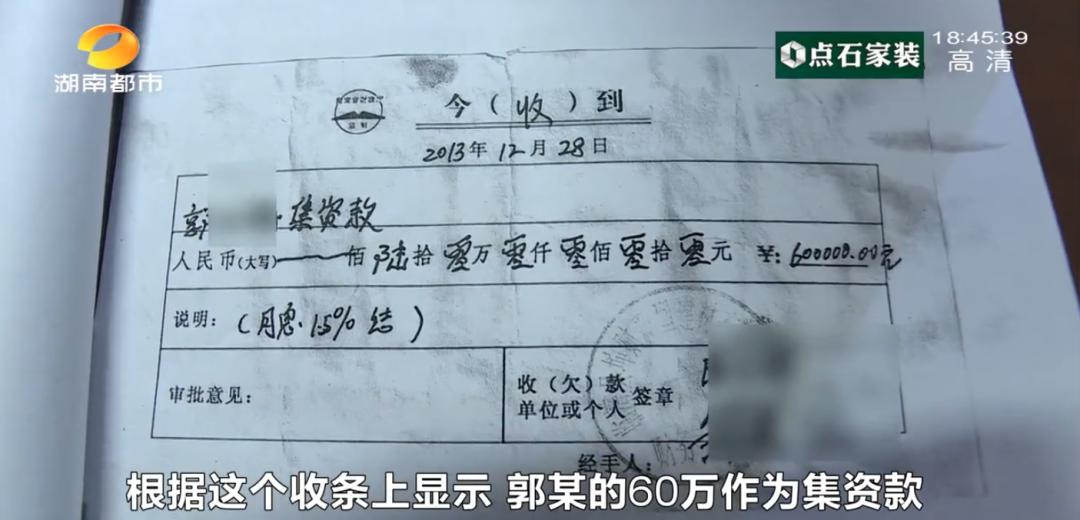 湖南都市
点石家装
18:45:39
高清
今（收）到
2013年12月28日
郭 集资款
人民币(大写) 佰陆拾零万零仟零佰零拾零元 ¥: 600000.00元
说明: (月息1.5%结)
审批意见:
收（欠）款
单位或个人
签章
经手人:
根据这个收条上显示 郭某的60万作为集资款